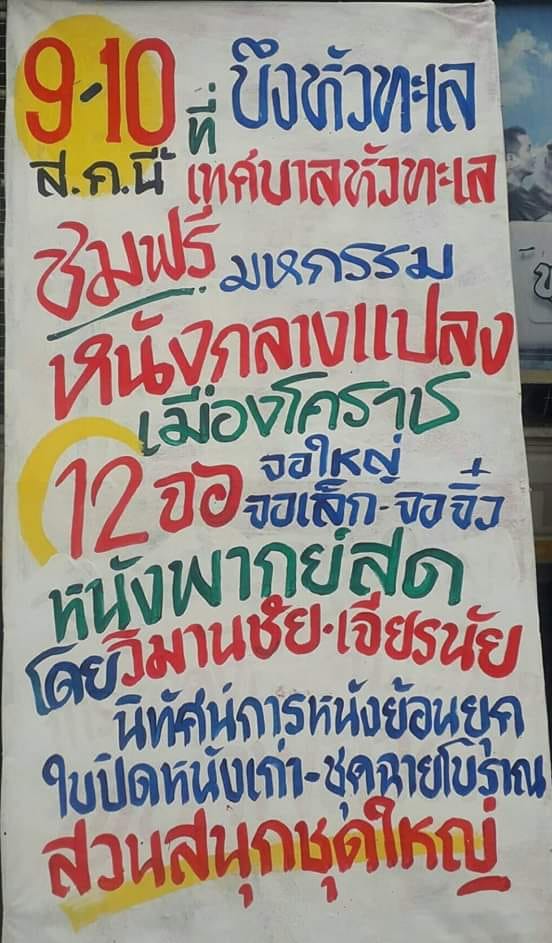 9-10 ที่ บึงหัวทะเล
ส.ค.นี้ เทศบาลหัวทะเล
ชมฟรี มหกรรม
หนังกลางแปลง
เมืองโคราช
12 จอ จอใหญ่
จอเล็ก-จอจิ๋ว
หนังพากย์สด
โดยวิมานชัย·เจียรนัย
นิทัศน์การหนังย้อนยุค
ใบปิดหนังเก่า-ชุดฉายโบราณ
สวนสนุกชุดใหญ่